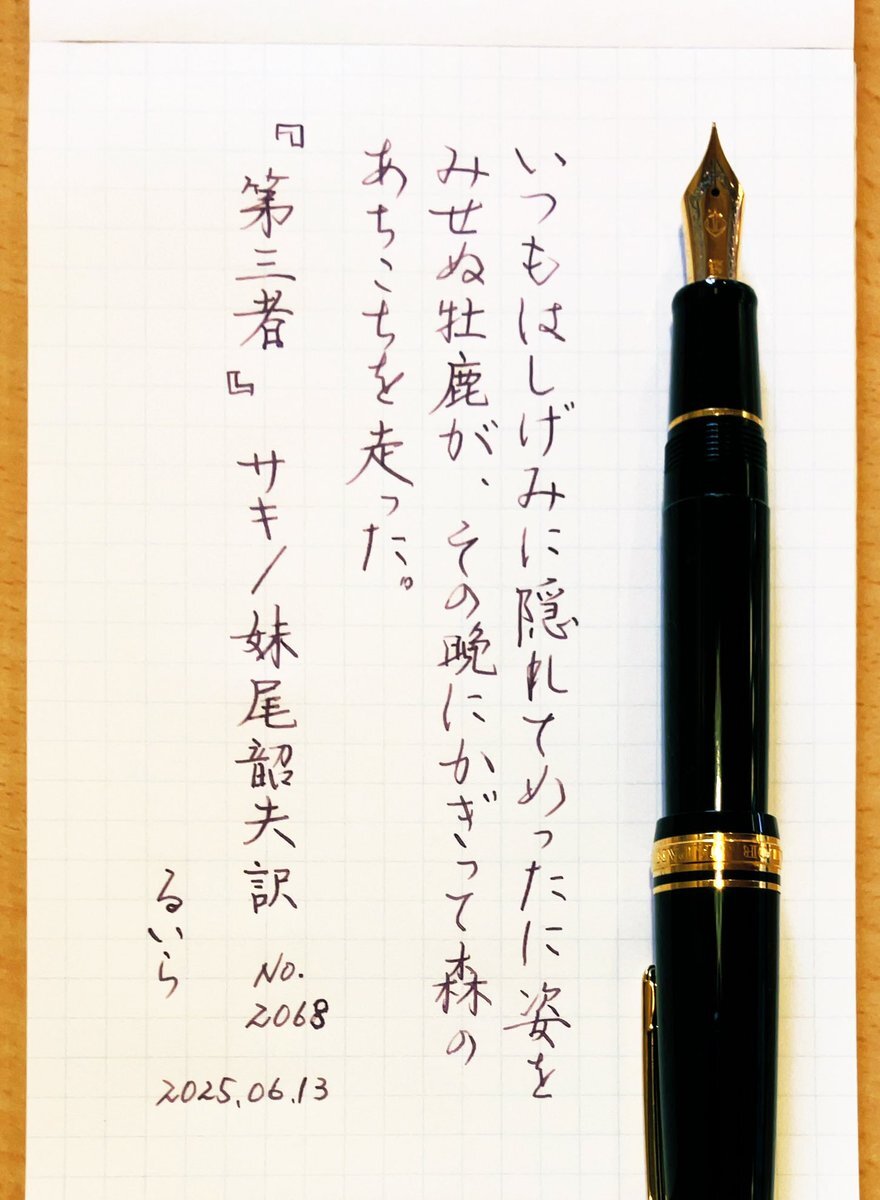 いつもはしげみに隠れてめったに姿を
みせぬ牡鹿が、その晩にかぎって森の
あちこちを走った。
『第三者』 サキ/妹尾韶夫訳 No.
2068
るいら
2025.06.13